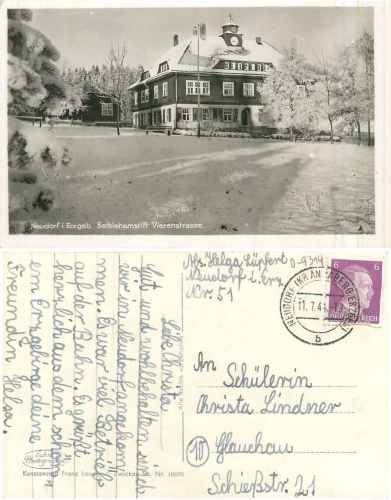 Neudorf i. Erzgeb. Bethlehemstift Vierenstrasse.
Liebe Christa
Gut und wohlbehalten sind
wir in Neudorf angekom-
men. Es war viel Betrieb
auf der Bahn. Es grüßt
herzlich aus dem schön-
em Erzgebirge deine
Freundin Helga.
Abs. Helga Lüpfert
Neudorf i. Erz.
Nr 51
6
6
REICH
NEUDORF (KR ANNABERG ERZGEB)
11.7.4
b
An
Schülerin
Christa Lindner
10
Glauchau
Schießstr. 21
Echte
Photographie
Kunstanstalt Franz Zwickau Nr. 10875